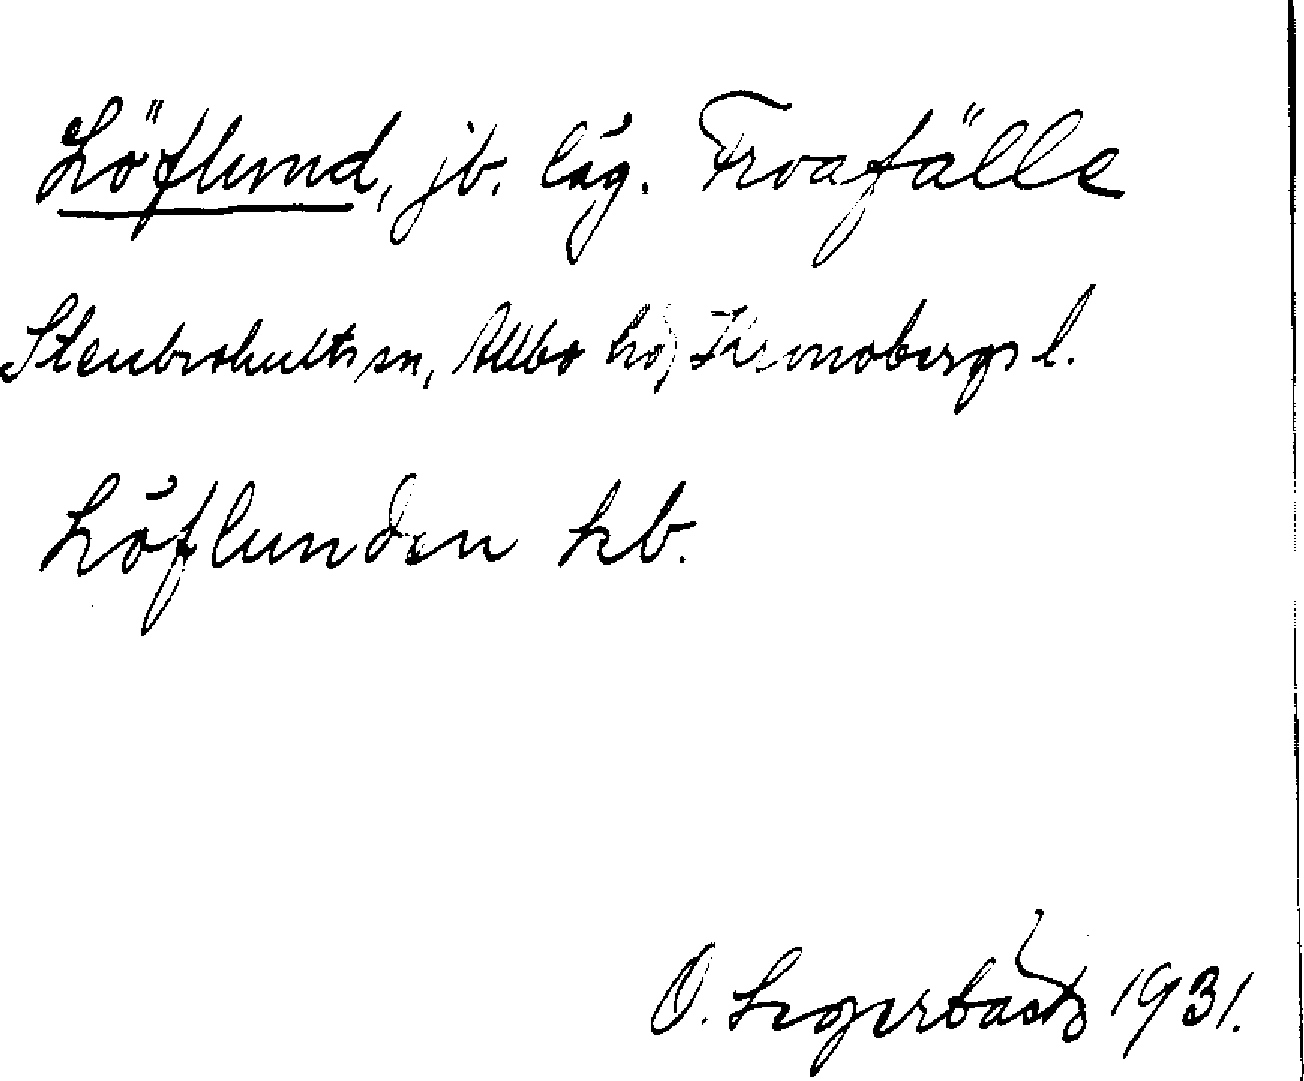 Löflund, jb. läg. Froafälle
Stenbrohults sn, Allbo hd, Kronobergs l.
Löflunden hb.
O. 1931.